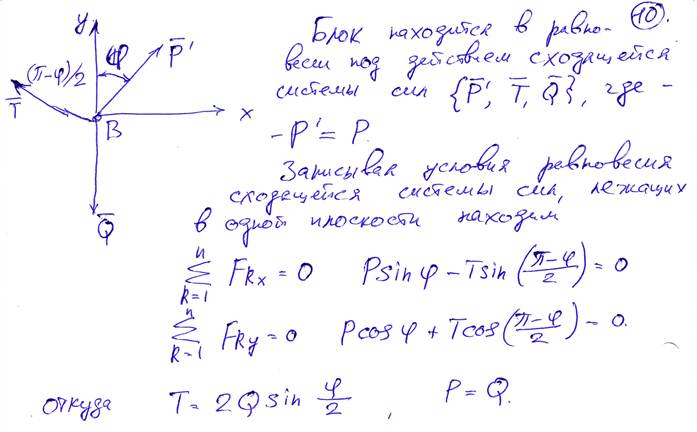 Блок находится в равно- 10.
весии под действием сходящейся
системы сил {P̄', T̄, Q̄}, где -
-P' = P.
Записывая условия равновесия
сходящейся системы сил, лежащих
в одной плоскости находим
y
φ
P̄'
(π-φ)/2
T̄
B
x
Q̄
∑ₖ₌₁ⁿ Fₖₓ = 0 P sin φ - T sin((π-φ)/2) = 0
∑ₖ₌₁ⁿ Fₖᵧ = 0 P cos φ + T cos((π-φ)/2) - 0.
откуда T = 2Q sin φ/2 , P = Q.